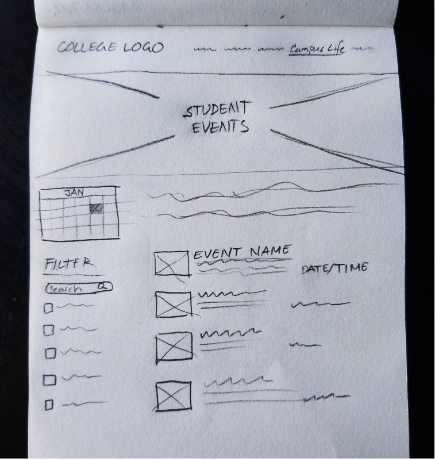 COLLEGE LOGO
Campus Life
STUDENT
EVENTS
JAN
FILTER
Search
EVENT NAME
DATE/TIME